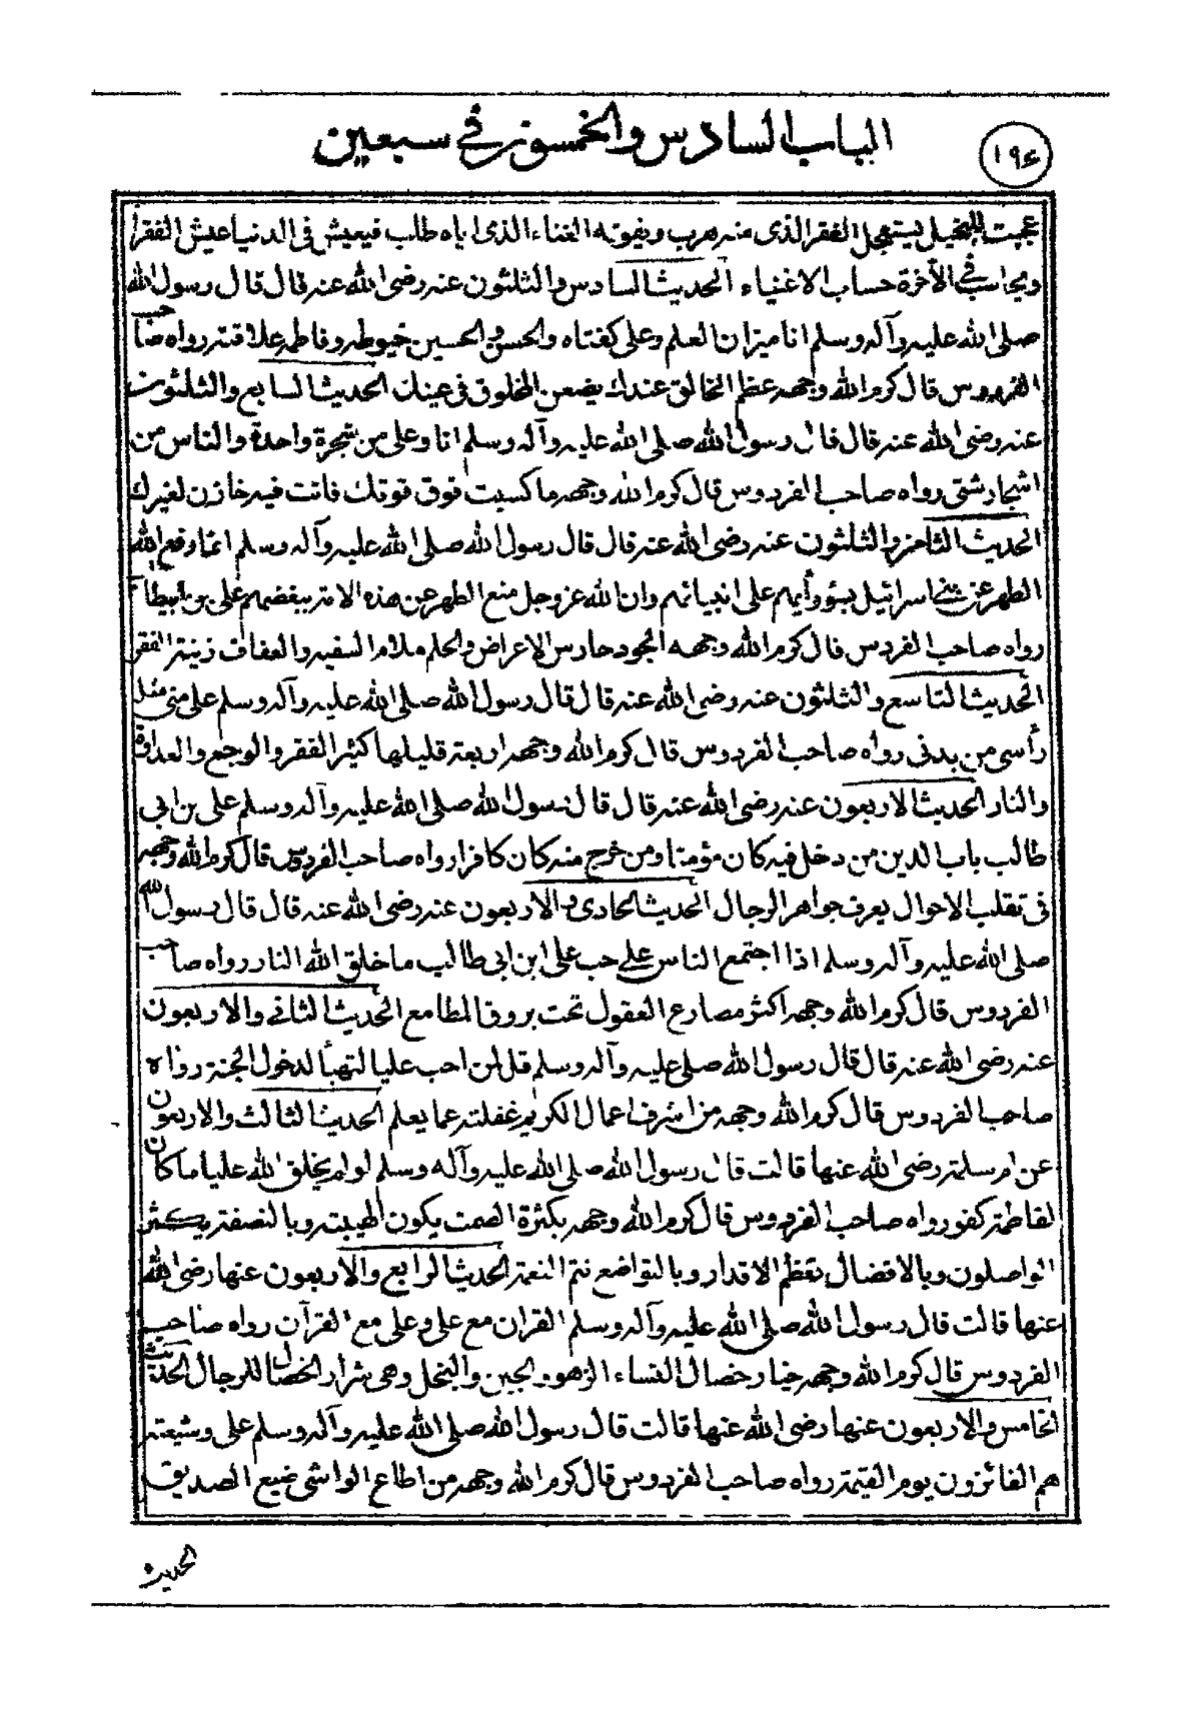 ١٩٤
الباب السادس والخمسون في سبعين
عجبت للبخيل يستعجل الفقر الذى منه هرب ويفوته الغناء الذى اياه طلب فيعيش فى الدنيا عيش الفقرا
ويحاسب في الآخرة حساب الاغنياء الحديث السادس والثلثون عنه رضى الله عنه قال قال رسول الله
صلى الله عليه وآله وسلم انا ميزان العلم وعلى كفتاه والحسن والحسين خيوطه وفاطمه علاقته رواه صاحب
الفردوس قال كرم الله وجهه عظم الخالق عندك يصغر المخلوق فى عينك الحديث السابع والثلثون
عنه رضى الله عنه قال قال رسول الله صلى الله عليه وآله وسلم انا وعلى من شجرة واحدة والناس من
اشجار شتى رواه صاحب الفردوس قال كرم الله وجهه ما كسبت فوق قوتك فانت فيه خازن لغيرك
الحديث الثامن والثلثون عنه رضى الله عنه قال قال رسول الله صلى الله عليه وآله وسلم انما رفع الله
الطهر عن بنى اسرائيل بسؤ رأيهم على انبيائهم وان الله عز وجل منع الطهر عن هذه الامة ببغضهم على بن ابيطا
رواه صاحب الفردوس قال كرم الله وجهه الجود حارس الاعراض والحلم ملام السفيه والعفاف زينة الفقر
الحديث التاسع والثلثون عنه رضى الله عنه قال قال رسول الله صلى الله عليه وآله وسلم على منى مثل
رأسى من بدنى رواه صاحب الفردوس قال كرم الله وجهه اربعة قليلها كثير الفقر والوجع والعداوة
والنار الحديث الاربعون عنه رضى الله عنه قال قال رسول الله صلى الله عليه وآله وسلم على بن ابى
طالب باب الدين من دخل فيه كان مؤمنا ومن خرج منه كان كافرا رواه صاحب الفردوس قال كرم الله وجهه
فى تقلب الاحوال يعرف جواهر الرجال الحديث الحادى والاربعون عنه رضى الله عنه قال قال رسول الله
صلى الله عليه وآله وسلم اذا اجتمع الناس على حب على ابن ابى طالب ما خلق الله النار رواه صاحب
الفردوس قال كرم الله وجهه اكثر مصارع العقول تحت بروق المطامع الحديث الثانى والاربعون
عنه رضى الله عنه قال قال رسول الله صلى عليه وآله وسلم قل لمن احب عليا لتهيأ لدخول الجنة رواه
صاحب الفردوس قال كرم الله وجهه من اشرف اعمال الكريم غفلته عما يعلم الحديث الثالث والاربعون
عن ام سلمة رضى الله عنها قالت قال رسول الله صلى الله عليه وآله وسلم لو لم يخلق الله عليا ما كان
لفاطمة كفو رواه صاحب الفردوس قال كرم الله وجهه بكثرة الصمت يكون الهيبة وبالنصفة يكثر
الواصلون وبالافضال تعظم الاقدار وبالتواضع تتم النعمة الحديث الرابع والاربعون عنها رضى الله
عنها قالت قال رسول الله صلى الله عليه وآله وسلم القران مع على وعلى مع القرآن رواه صاحب
الفردوس قال كرم الله وجهه خيار خصال النساء الزهو والجبن والبخل وهى شرار الخصال للرجال الحديث
الخامس والاربعون عنها رضى الله عنها قالت قال رسول الله صلى الله عليه وآله وسلم على وشيعته
هم الفائزون يوم القيمة رواه صاحب الفردوس قال كرم الله وجهه من اطاع الواشى ضيع الصديق
الحديث